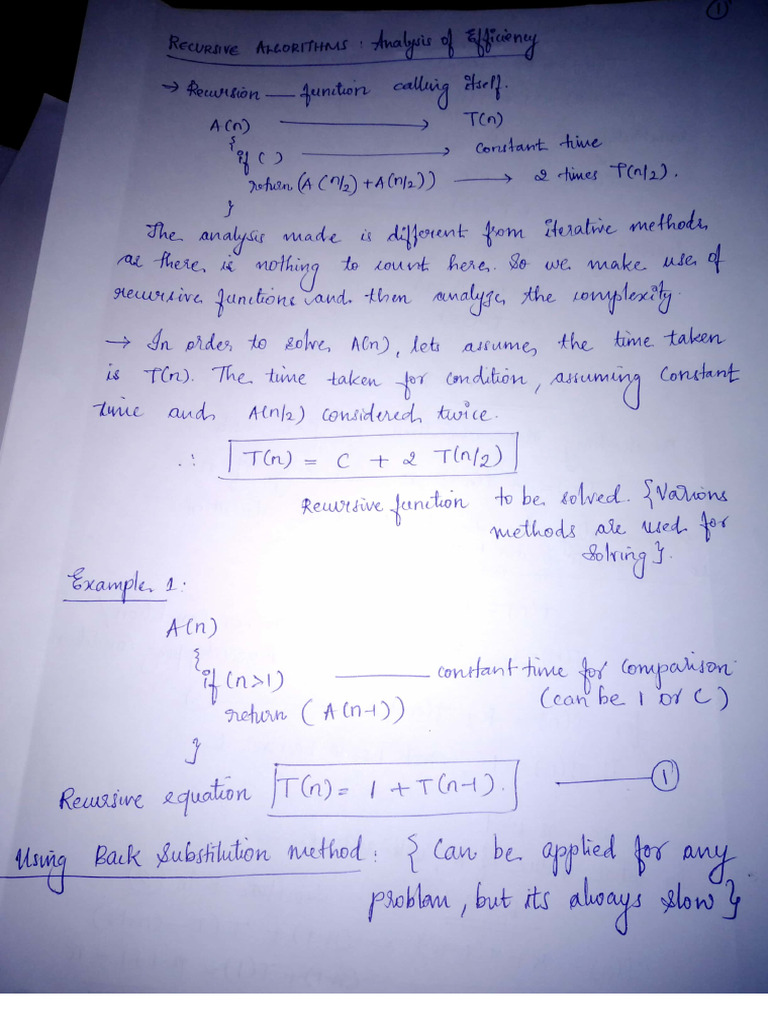 1
RECURSIVE ALGORITHMS : Analysis of Efficiency
→ Recursion — function calling itself.
A(n) → T(n)
{
if ( ) → constant time
return (A(n/2) + A(n/2)) → 2 times T(n/2).
}
The analysis made is different from iterative methods
as there is nothing to count here. So we make use of
recursive functions and then analyze the complexity.
→ In order to solve A(n), lets assume the time taken
is T(n). The time taken for condition, assuming constant
time and A(n/2) considered twice.
∴ T(n) = C + 2 T(n/2)
Recursive function to be solved. {Various
methods are used for
solving}.
Example 1:
A(n)
{
if (n>1) — constant time for comparison
return (A(n-1)) (can be 1 or C)
}
Recursive equation T(n) = 1 + T(n-1). — 1
Using Back Substitution method : { Can be applied for any
problem, but its always slow}